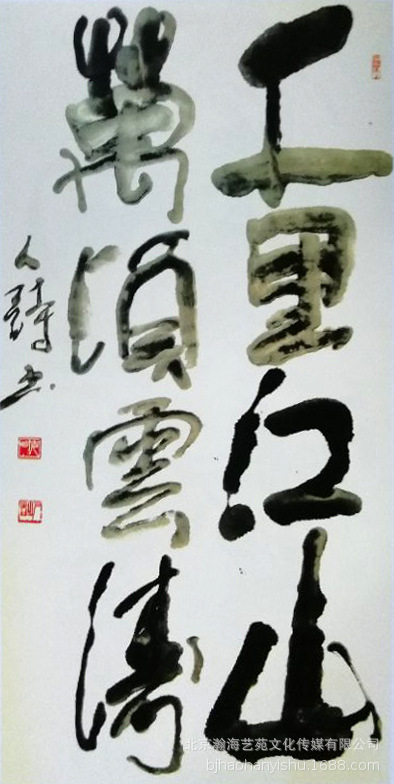 千里江山
萬頃雲涛
北京瀚海艺苑文化传媒有限公司
bjhaohanyishu.1688.com